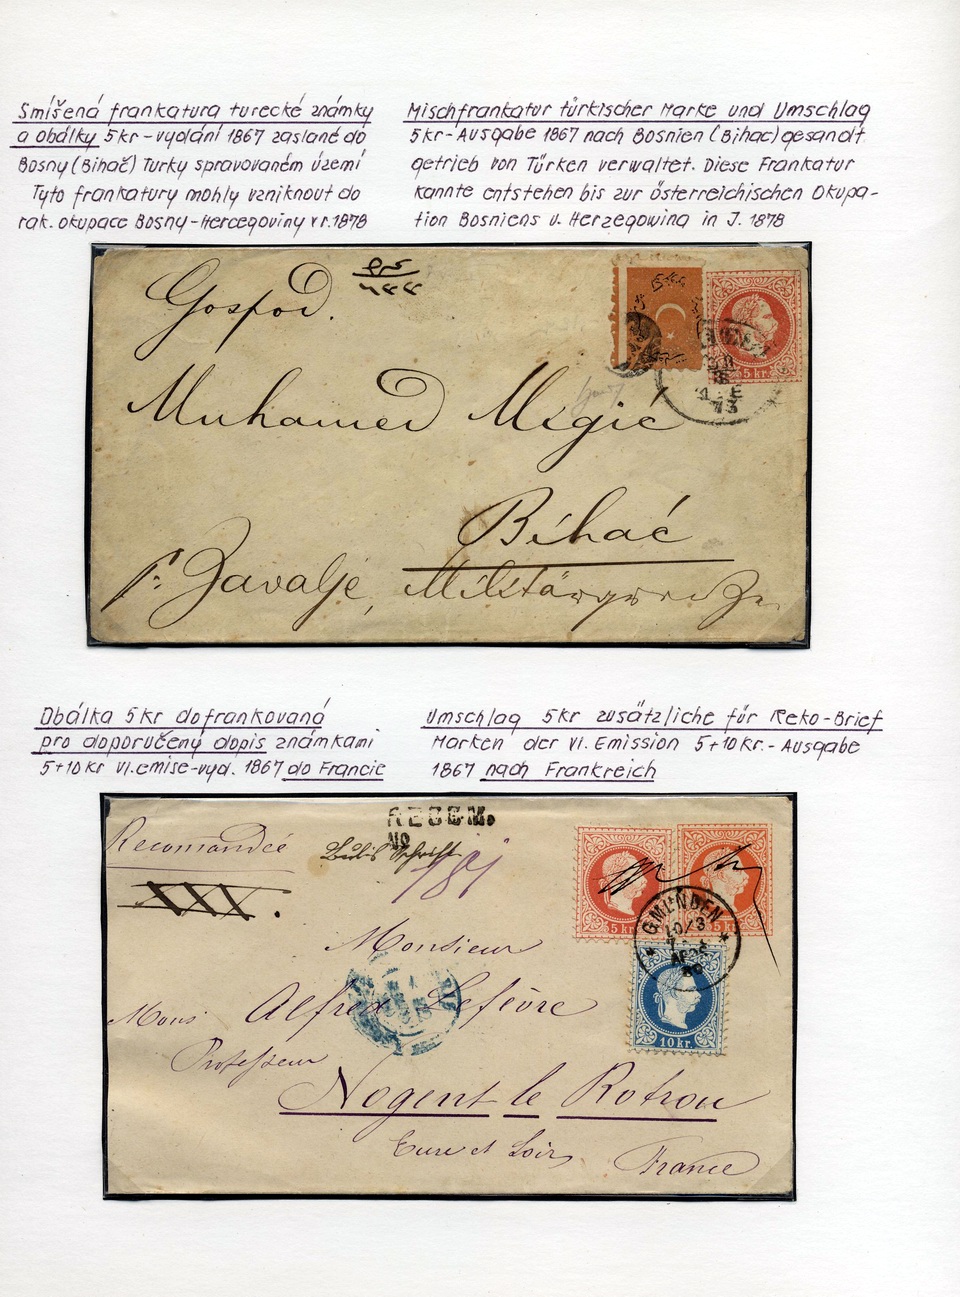 Smíšená frankatura turecké známky
a obálky 5kr-vydání 1867 zaslané do
Bosny (Bihač) Turky spravovaném území
Tyto frankatury mohly vzniknout do
rak. okupace Bosny-Hercegoviny v r. 1878
Mischfrankatur türkischer Marke und Umschlag
5kr-Ausgabe 1867 nach Bosnien (Bihac) gesandt
getrieb von Türken verwaltet. Diese Frankatur
kannte entstehen bis zur österreichischen Okupa-
tion Bosniens u. Herzegowina in J. 1878
Gospod.
5 kr.
73
Muhamed Msgić
Bihać
p: Zavalje,
Obálka 5kr dofrankovaná
pro doporučený dopis známkami
5+10kr VI.emise-vyd. 1867 do Francie
Umschlag 5kr zusätzliche für Reko-Brief
Marken der VI. Emission 5+10kr.-Ausgabe
1867 nach Frankreich
RECOM.
No
Recomandée
5 kr.
5 kr.
GMUNDEN
10/3
10 kr.
Monsieur
Alfred Lefèvre
Mons
Professeur
Nogent le Rotrou
Eure et Loir
France